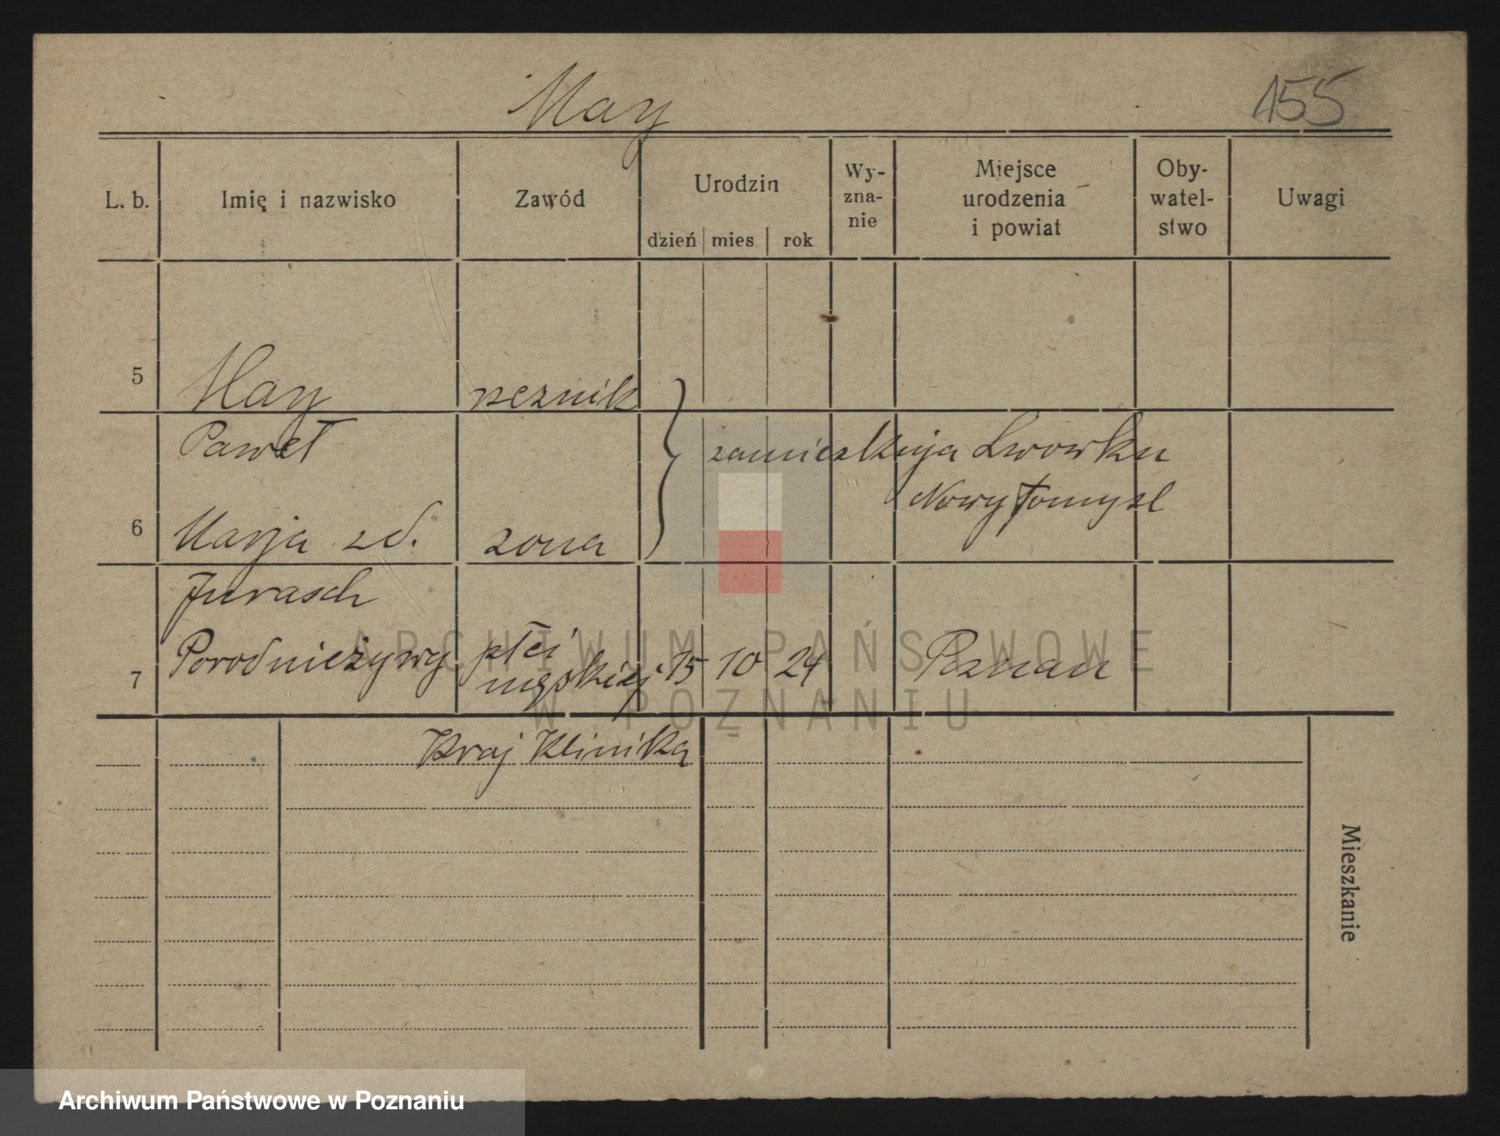 May
155
L. b. Imię i nazwisko Zawód Urodzin dzień mies. rok Wy-zna-nie Miejsce urodzenia i powiat Oby-watel-stwo Uwagi
5 May rzeznik
Paweł zamieszkuja Lwowku
Nowy Tomysl
6 Marja zd. zona
Jurasch
7 Porodnieżywy płci męskiej 15 10 24 Poznan
Kraj Klinika
Mieszkanie
ARCHIWUM PAŃSTWOWE
W POZNANIU
Archiwum Państwowe w Poznaniu